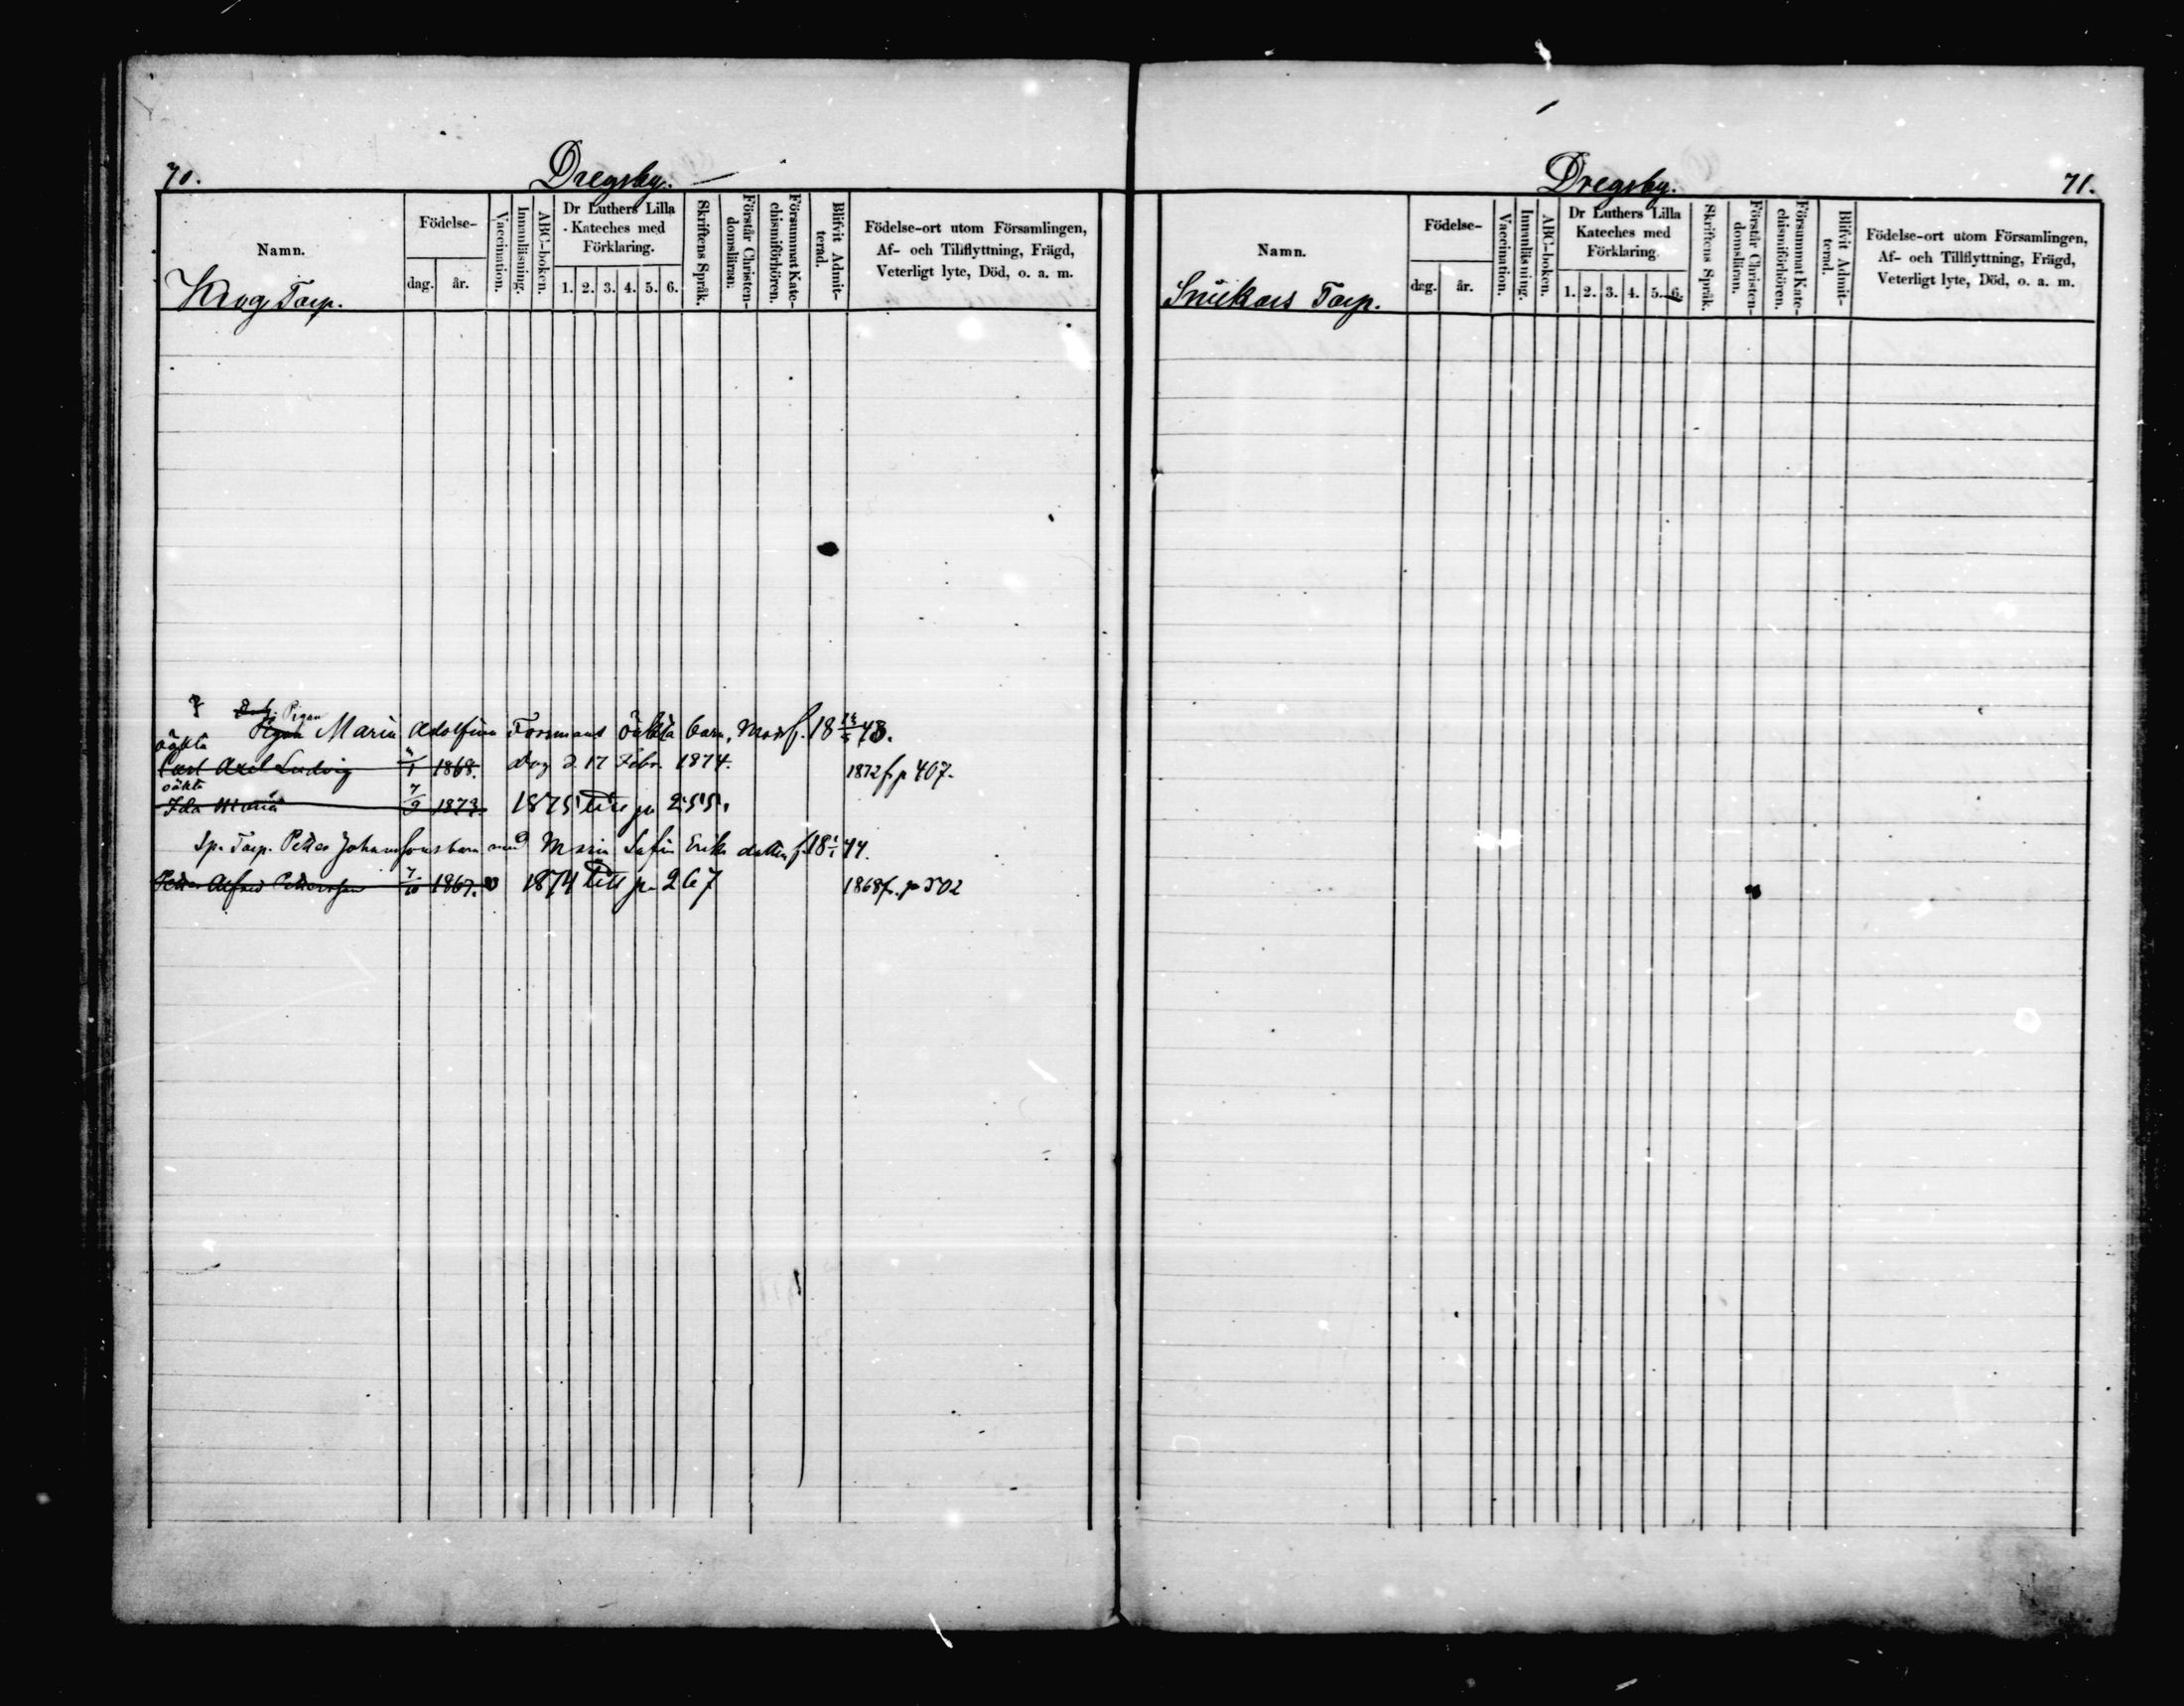 70.
Dregsby.
Namn.
Födelse-
dag. år.
Vaccination.
Innanläsning.
ABC-boken.
Dr Luthers Lilla
Kateches med
Förklaring.
1. 2. 3. 4. 5. 6.
Skriftens Språk.
Förstår Christen-
domsläran.
Försummat Kate-
chismiförhören.
Blifvit Admit-
terad.
Födelse-ort utom Församlingen,
Af- och Tillflyttning, Frägd,
Veterligt lyte, Död, o. a. m.
Krog Torp.
Pigan
Maria Adolfina Forsmans oäkta barn, Mod f. 18 43.
oäkta
Carl Axel Ludvig 1868. dog d. 17 Febr. 1874. 1872 fr p 407.
oäkta
Ida Maria 7/9 1873. 1875 till pa 255.
Sp. Torp. Petter Johanssons barn med Maria Sofia Eriks dotter f. 18 44.
Petter Alfred Pettersson 7/10 1867. v 1874 till p. 267 1868 fr. p 502
Dregsby.
71.
Namn.
Födelse-
dag. år.
Vaccination.
Innanläsning.
ABC-boken.
Dr Luthers Lilla
Kateches med
Förklaring.
1. 2. 3. 4. 5. 6.
Skriftens Språk.
Förstår Christen-
domsläran.
Försummat Kate-
chismiförhören.
Blifvit Admit-
terad.
Födelse-ort utom Församlingen,
Af- och Tillflyttning, Frägd,
Veterligt lyte, Död, o. a. m.
Snickars Torp.